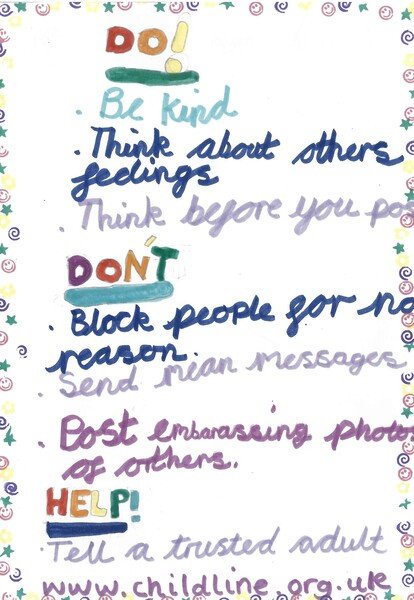 DO!
. Be kind
. Think about others
feelings
. Think before you pos
DON'T
. Block people for no
reason.
. Send mean messages
. Post embarassing photos
of others.
HELP!
. Tell a trusted adult
www.childline.org.uk